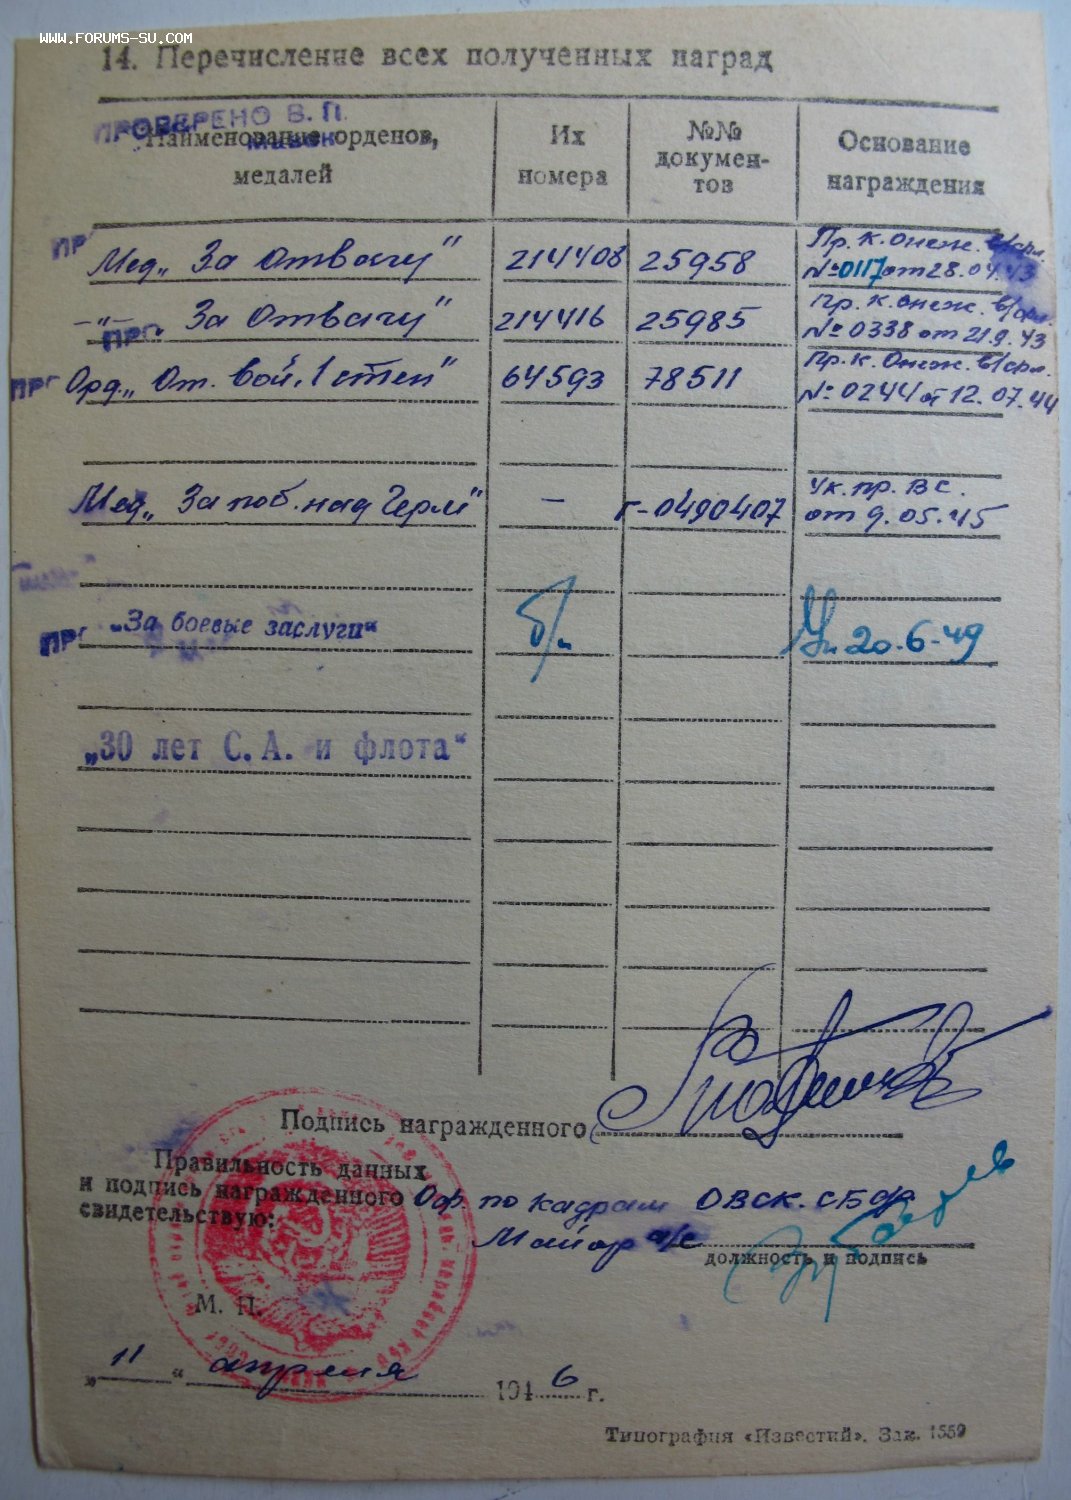 www.forums-su.com
14. Перечисление всех полученных наград
ПРОВЕРЕНО В. П.
Наименование орденов, медалей
Их номера
№№ документов
Основание награждения
Мед. „За Отвагу" 214408 25958 Пр. К. Онеж. в/фл. №0117 от 28.04.43
–"– „За Отвагу" 214416 25985 Пр. К. Онеж. в/фл. №0338 от 21.9.43
Орд. „От. Вой. 1 степ" 64593 78511 Пр. К. Онеж. в/фл. №0244 от 12.07.44
Мед. „За поб. над Герм" – Г-0490407 Ук. пр. ВС. от 9.05.45
„За боевые заслуги" б/н Ук 20-6-49
„30 лет С. А. и флота"
Подпись награжденного
Правильность данных
и подпись награжденного Оф. по кадрам
свидетельствую:
Майор а/с
должность и подпись
М. П.
„11" апреля 1946 г.
Типография «Известий». Зак. 1559